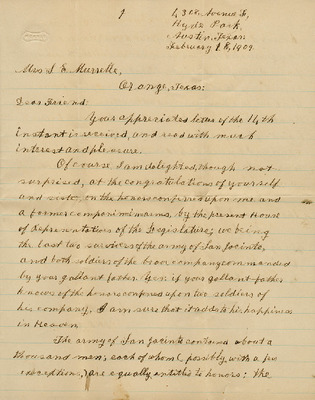 1
43th Avenue F,
Hyde Park,
Austin, Texas
February 18, 1909.
Mrs. J. E. Murrelle,
Orange, Texas:
Dear Friend:
Your appreciated letter of the 14th
instant is received, and read with much
interest and pleasure.
Of course, I am delighted, though not
surprised, at the congratulations of yourself
and sister, on the honors conferred upon me and
a former companion in arms, by the present House
of Representatives of the Legislature; we being
the last two survivors of the army of San Jacinto,
and both soldiers of the brave company commanded
by your gallant father. Yes if your gallant father
knows of the honors conferred upon two soldiers of
his company, I am sure that it adds to his happiness
in Heaven.
The army of San Jacinto contains about a
thousand men, each of whom (possibly with a few
exceptions,) are equally entitled to honors: the